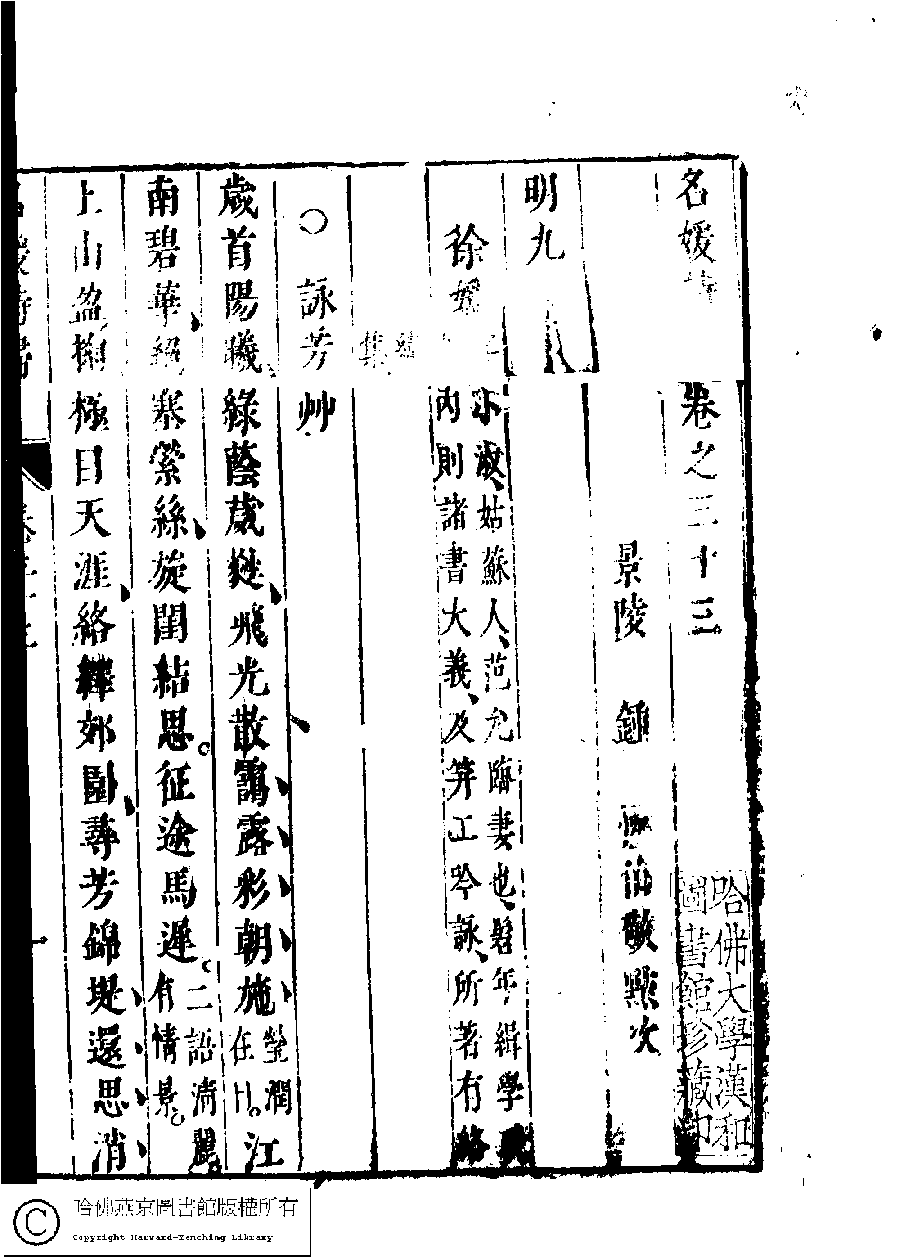 名媛詩
卷之三十三
景陵 鍾 惺伯敬點次
明九
徐媛
小淑、姑蘇人、范允臨妻也、髫年緝學
內則諸書大義、及筓工吟詠、所著有絡
緯
集
○詠芳艸
歲首陽曦綠蔭葳蕤飛光散靄露彩朝施瑩潤
在目。江
南碧華紹寒縈絲旋閨結思。征途馬遲。二語淸麗
有情景。
上山盈掬極目天涯絡繹郊園尋芳錦堤還思消
哈佛大學漢和
圖書館珍藏印
哈佛燕京圖書館版權所有
Copyright Harvard-Yenching Library